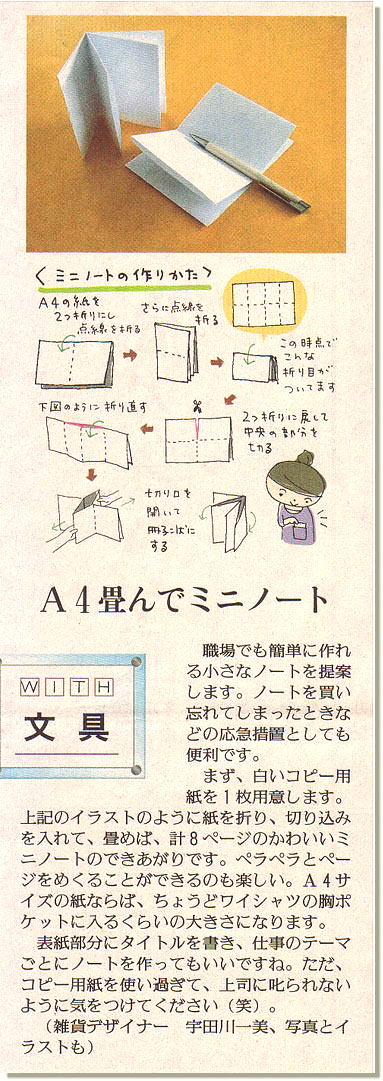 〈ミニノートの作りかた〉
A4の紙を
2つ折りにし
点線を折る
さらに点線を
折る
この時点で
こんな
折り目が
ついてます
2つ折りに戻して
中央の部分を
切る
下図のように折り直す
切り口を
開いて
冊子っぽく
する
A4畳んでミニノート
WITH
文具
職場でも簡単に作れ
る小さなノートを提案
します。ノートを買い
忘れてしまったときな
どの応急措置としても
便利です。
まず、白いコピー用
紙を1枚用意します。
上記のイラストのように紙を折り、切り込み
を入れて、畳めば、計8ページのかわいいミ
ニノートのできあがりです。ペラペラとペー
ジをめくることができるのも楽しい。A4サ
イズの紙ならば、ちょうどワイシャツの胸ポ
ケットに入るくらいの大きさになります。
表紙部分にタイトルを書き、仕事のテーマ
ごとにノートを作ってもいいですね。ただ、
コピー用紙を使い過ぎて、上司に叱られない
ように気をつけてください（笑）。
（雑貨デザイナー　宇田川一美、写真とイ
ラストも）